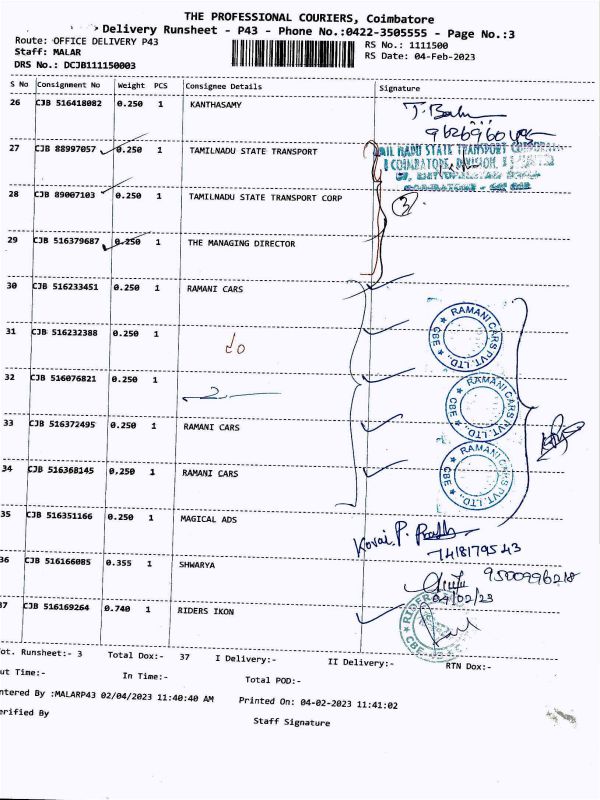 THE PROFESSIONAL COURIERS, Coimbatore
Delivery Runsheet - P43 - Phone No.:0422-3505555 - Page No.:3
Route: OFFICE DELIVERY P43 RS No.: 1111500
Staff: MALAR RS Date: 04-Feb-2023
DRS No.: DCJB111150003
S No Consignment No Weight PCS Consignee Details Signature
26 CJB 516418082 0.250 1 KANTHASAMY
27 CJB 88997057 0.250 1 TAMILNADU STATE TRANSPORT
28 CJB 89007103 0.250 1 TAMILNADU STATE TRANSPORT CORP
3
29 CJB 516379687 0.250 1 THE MANAGING DIRECTOR
30 CJB 516233451 0.250 1 RAMANI CARS
RAMANI CARS PVT. LTD., CBE
31 CJB 516232388 0.250 1
32 CJB 516076821 0.250 1
RAMANI CARS PVT. LTD., CBE
33 CJB 516372495 0.250 1 RAMANI CARS
34 CJB 516368145 0.250 1 RAMANI CARS
RAMANI CARS PVT. LTD., CBE
35 CJB 516351166 0.250 1 MAGICAL ADS
Kovai. P.
7418179543
36 CJB 516166085 0.355 1 SHWARYA
9500996218
04/02/23
37 CJB 516169264 0.740 1 RIDERS IKON
ot. Runsheet:- 3 Total Dox:- 37 I Delivery:- II Delivery:- RTN Dox:-
ut Time:- In Time:- Total POD:-
ntered By :MALARP43 02/04/2023 11:40:40 AM Printed On: 04-02-2023 11:41:02
erified By Staff Signature